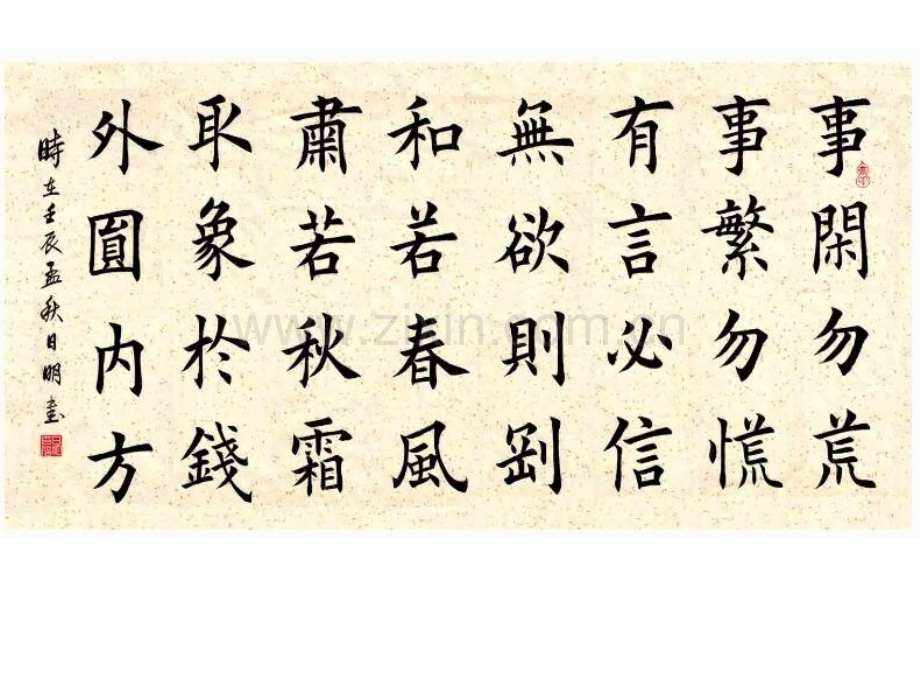 事閑勿荒
事繁勿慌
有言必信
無欲則剛
和若春風
肅若秋霜
取象於錢
外圓内方
時在壬辰孟秋日明書
www.zixin.com.cn